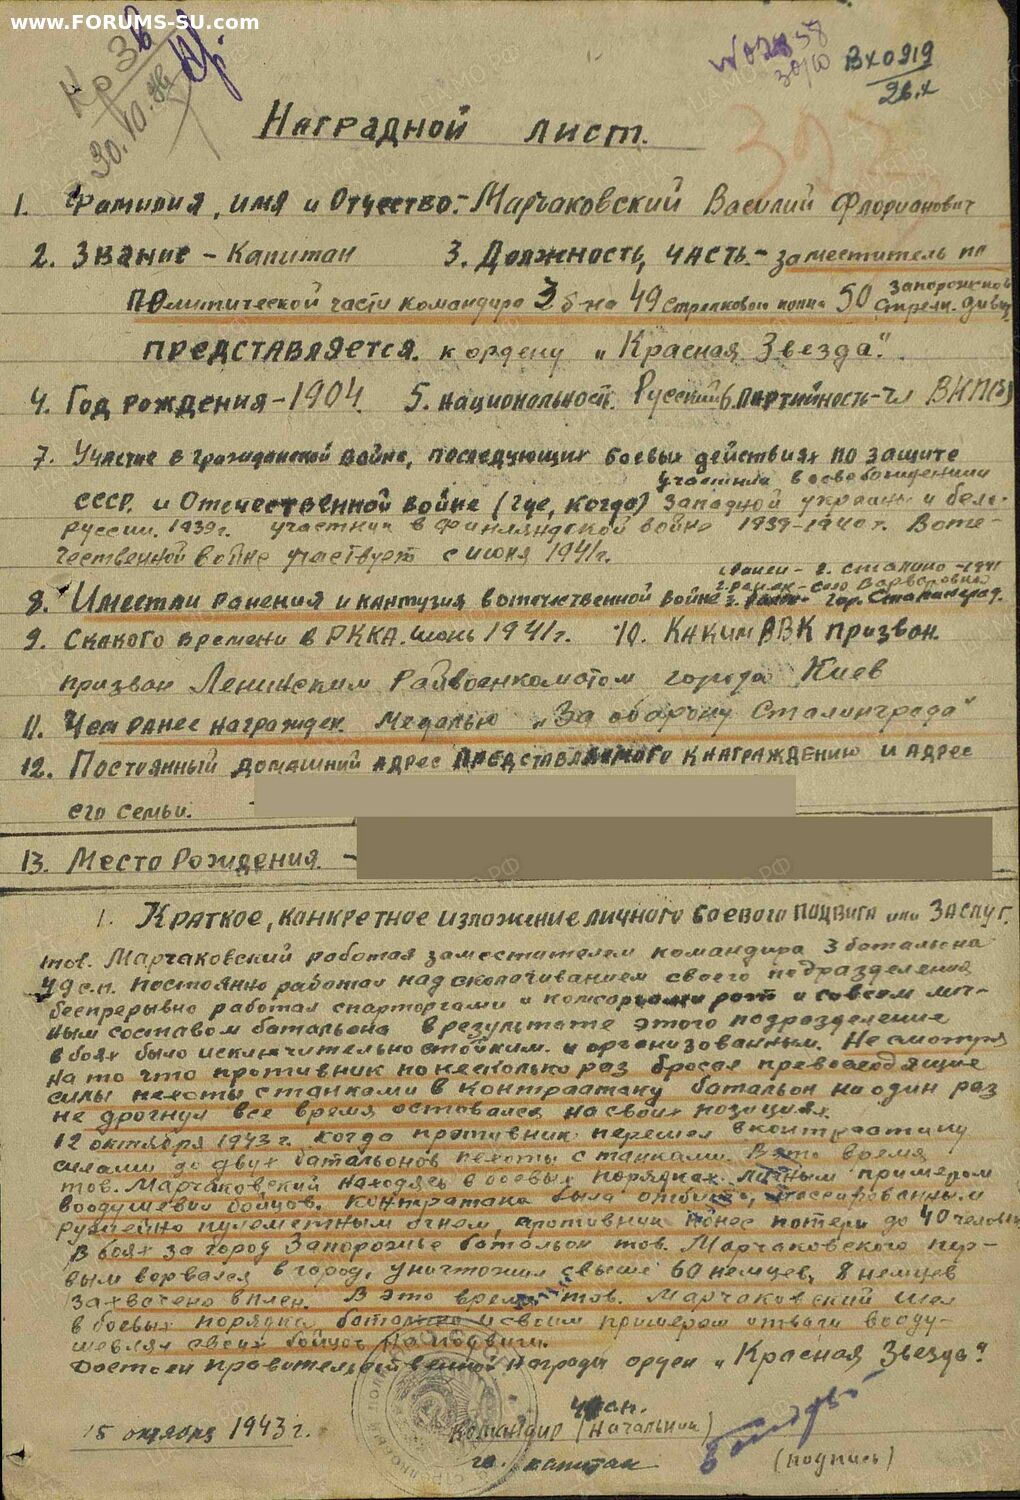 www.FORUMS-SU.com
Кр 36
30.10.
30/10
Вх 0919
26.X
Наградной лист.
1. Фамилия, имя и Отчество:- Марчаковский Василий Флорианович
2. Звание - Капитан 3. Должность, часть.- заместитель по
политической части командира 3 б-на 49 стрелкового полка 50 Запорожской
Стрелк. дивиз
представляется. к ордену „Красная Звезда".
4. Год рождения - 1904. 5. национальност. Русский 6. партийность - чл ВКП(б)
7. Участие в гражданской войне, последующих боевых действиях по защите
участник в освобождении
СССР. и Отечественной войне (где, когда) Западной украины и Бело-
руссии. 1939г. участник в Финляндской войне 1939-1940г. В оте-
чественной войне участвует с июня 1941г.
1 Ранен - г. Сталино - 1941
2. ранен - село Варваровка
8. Имеет ли ранения и контузия в отечественной войне 3. гор. Сталинград.
9. С какого времени в РККА. Июнь 1941г. 10. Каким РВК призван.
призван Ленинским Райвоенкоматом города Киев
11. Чем ранее награжден. Медалью „За оборону Сталинграда"
12. Постоянный домашний адрес представляемого к награждению и адрес
его семьи.
13. Место Рождения -
1. Краткое, конкретное изложение личного боевого подвига или заслуг.
тов. Марчаковский работая заместителем командира 3 батальона
49 с.п. постоянно работал над сколачиванием своего подразделения
беспрерывно работал с парторгами и комсоргами рот и совсем лич-
ным составом батальона в результате этого подразделение
в боях было исключительно стойким. и организованным. Не смотря
на то что противник по несколько раз бросал превосходящие
силы пехоты с танками в контратаку батальон ни один раз
не дрогнул все время оставался на своих позициях.
12 октября 1943г. когда противник перешел в контратаку
силами до двух батальонов пехоты с танками. В это время
тов. Марчаковский находясь в боевых порядках личным примером
воодушевил бойцов. контратака была отбита, массированным
ружейно пулеметным огнем, противник понес потери до 40 человек
В боях за город Запорожье батальон тов. Марчаковского пер-
вым ворвался в город, уничтожил свыше 60 немцев, 8 немцев
захвачено в плен. В это время тов. Марчаковский шел
в боевых порядках батальона и своим примером отваги вооду-
шевлял своих бойцов на подвиги.
Достоен правительственной награды орден „Красная Звезда".
15 октября 1943г.
Командир (Начальник)
гв. капитан
(подпись)